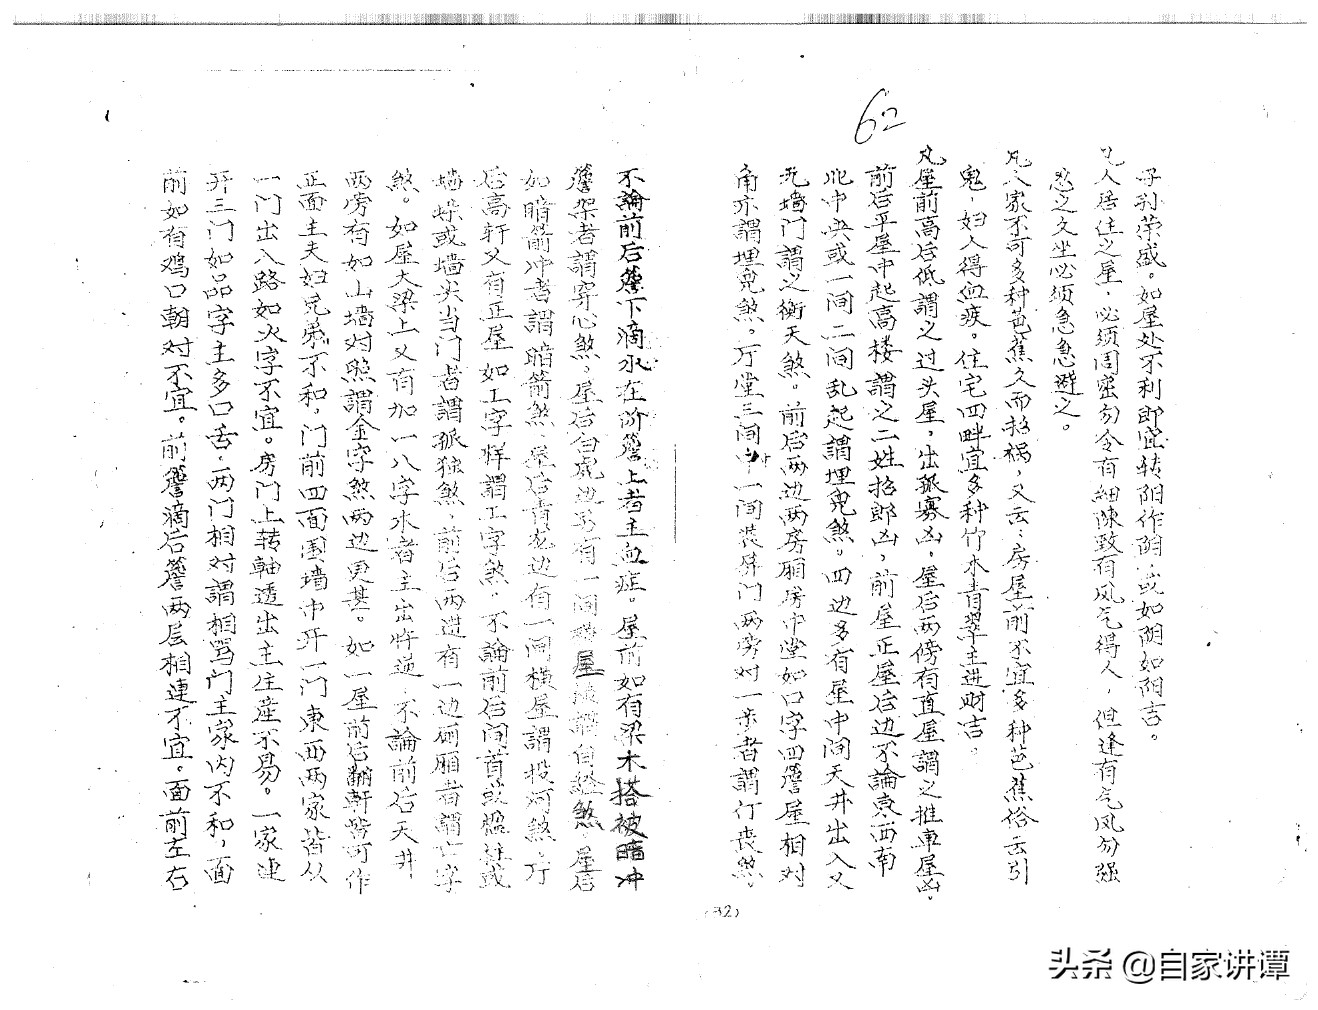 62
子孙荣盛。如屋处不利即宜转阳作阴,或如阴如阳吉。
凡人居住之屋,必须周密勿令有细陳致有风气得人,但逢有气风勿强
忍之久坐必须急急避之。
凡人家不可多种芭蕉久而招祸,又云:房屋前不宜多种芭蕉俗云引
鬼,妇人得血疾。住宅四畔宜多种竹木青翠主进财吉。
凡屋前高后低謂之过头屋,出孤寡凶,屋后两傍有直屋謂之推車屋凶。
前后平屋中起高楼謂之二姓招郎凶,前屋正屋后边不論東西南
北中央或一间二间乱起謂埋児煞。四边多有屋中间天井出入又
无墙门謂之衡天煞。前后两边两房厢房中堂如口字四簷屋相对
角亦謂埋児煞。厅堂三间 一间装屏门两旁对一步者謂仃丧煞。
不論前后簷下滴水在阶簷上者主血症。屋前如有梁木搭被暗冲
簷架者謂穿心煞。屋后白虎边另有一间横屋 謂自縊煞 屋后
如暗箭冲者謂暗箭煞、屋后青龙边有一间横屋謂投河煞。厅
后高軒又有正屋如工字样謂工字煞。不論前后间首或楹柱或
墙垛或墙尖当门者謂孤独煞,前后两进有一边厢廂者謂亡字
煞。如屋大梁上又有加一八字水者主出忤逆,不論前后天井
两旁有如山墙对照謂金字煞两边更甚。如一屋前后翻軒皆可作
正面主夫妇兄弟不和,门前四面围墙中开一门東西两家皆从
一门出入路如火字不宜。房门上转軸透出主生産不易。一家連
开三门如品字主多口舌,两门相对謂相骂门主家内不和,面
前如有鸡口朝对不宜。前簷滴后簷两层相連不宜。面前左右
(32)
头条 @自家讲谭